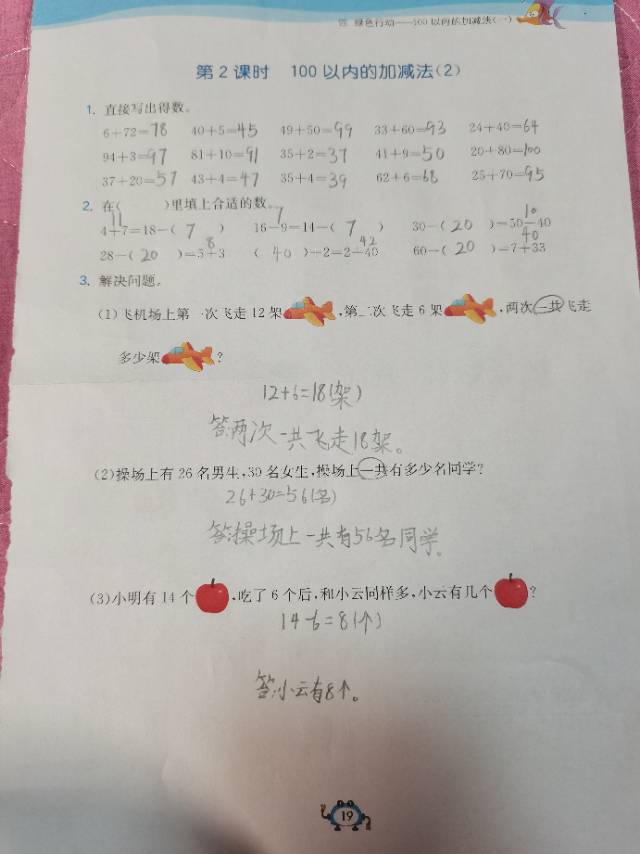 四 绿色行动——100以内的加减法(一)
第2课时 100以内的加减法(2)
1. 直接写出得数。
6+72=78 40+5=45 49+50=99 33+60=93 24+40=64
94+3=97 81+10=91 35+2=37 41+9=50 20+80=100
37+20=57 43+4=47 35+4=39 62+6=68 25+70=95
2. 在( )里填上合适的数。
11 7 10
4+7=18-( 7 ) 16-9=14-( 7 ) 30-( 20 )=50-40
8 42 40
28-( 20 )=5+3 ( 40 )-2=2+40 60-( 20 )=7+33
3. 解决问题。
(1)飞机场上第一次飞走12架,第二次飞走6架,两次一共飞走
多少架?
12+6=18(架)
答:两次一共飞走18架。
(2)操场上有26名男生,30名女生,操场上一共有多少名同学?
26+30=56(名)
答:操场上一共有56名同学。
(3)小明有14个,吃了6个后,和小云同样多,小云有几个?
14-6=8(个)
答:小云有8个。
19